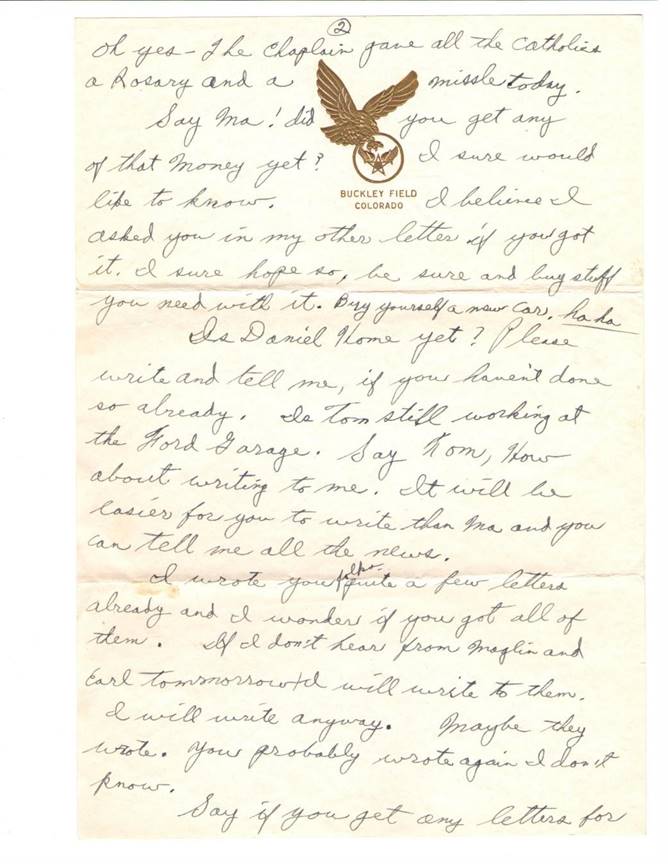 2
Oh yes - The Chaplain gave all the Catholics
a Rosary and a missle today.
Say Ma! did you get any
of that Money yet? I sure would
like to know. I believe I
BUCKLEY FIELD
COLORADO
asked you in my other letter if you got
it. I sure hope so, be sure and buy stuff
you need with it. Buy yourself a new car. ha ha
Is Daniel Home yet? Please
write and tell me, if you haven't done
so already. Is Tom still working at
the Ford Garage. Say Tom, How
about writing to me. It will be
easier for you to write than Ma and you
can tell me all the news.
I wrote you quite a few letters
already and I wonder if you got all of
them. If I don't hear from and
Earl tommorrow I will write to them.
I will write anyway. Maybe they
wrote. You probably wrote again I don't
know.
Say if you get any letters for